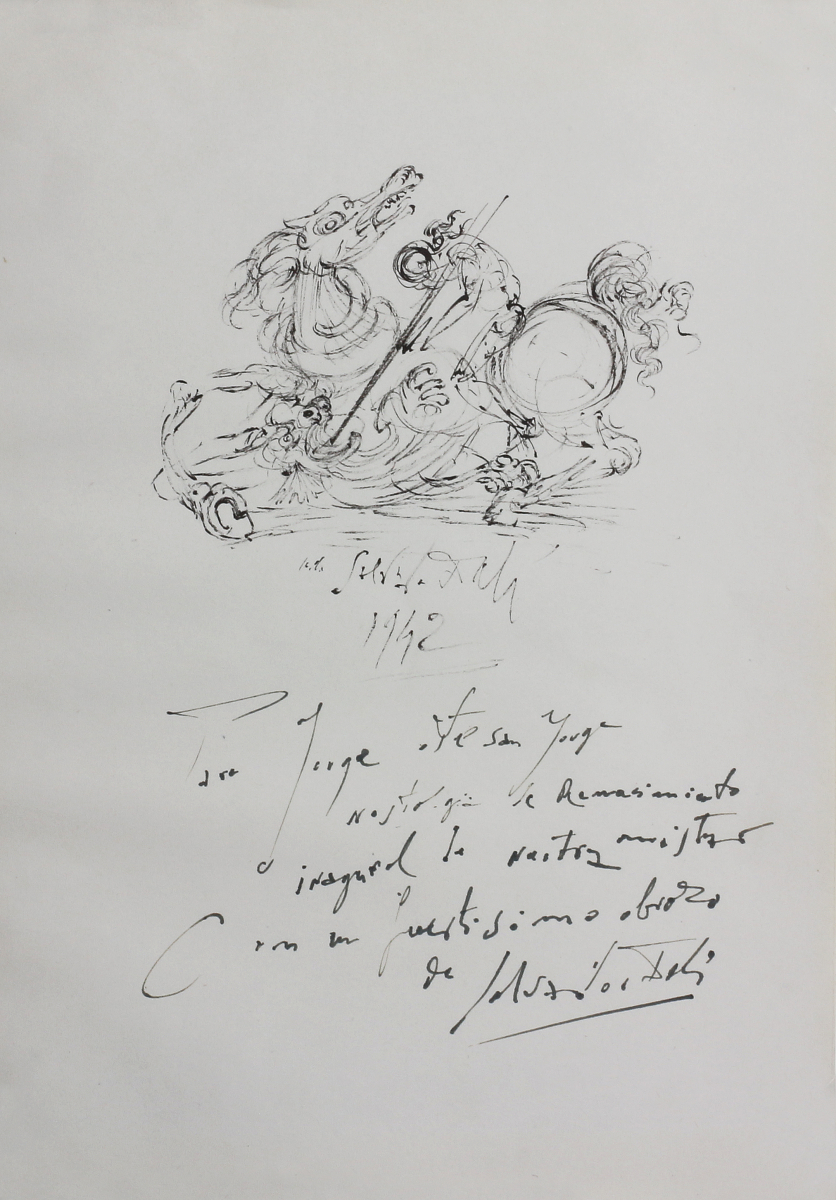 Salvador Dalí
1942
Para Jorge este san Jorge
nostalgia de Renacimiento
inagural de nuestra amistad
Con un fuertisimo abrazo
de Salvador Dalí